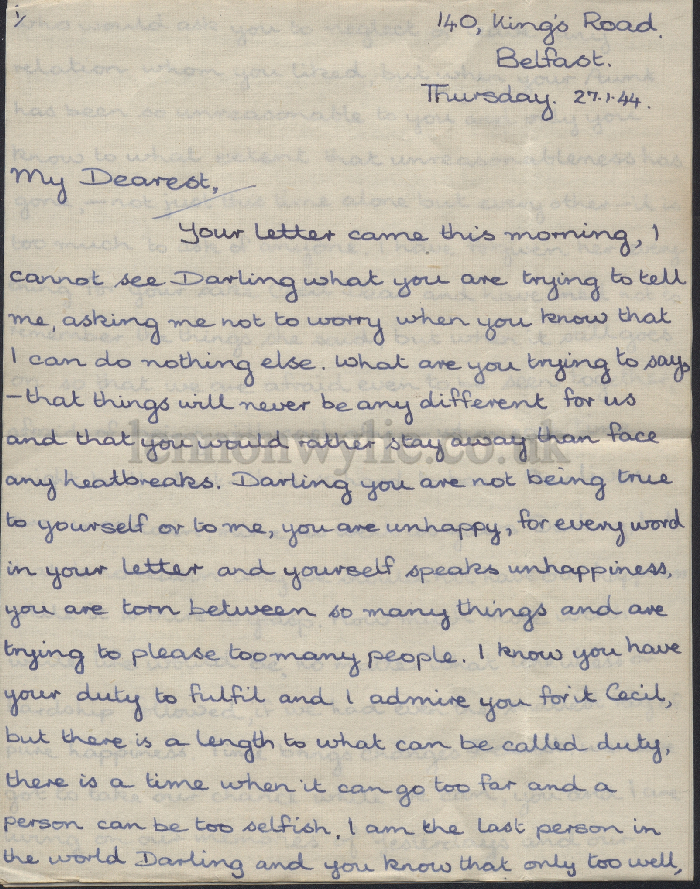 1/
140, King's Road.
Belfast.
Thursday. 27.1.44.
My Dearest,
Your letter came this morning, I
cannot see Darling what you are trying to tell
me, asking me not to worry when you know that
I can do nothing else. What are you trying to say,
- that things will never be any different for us
and that you would rather stay away than face
lennonwylie.co.uk
any heatbreaks. Darling you are not being true
to yourself or to me, you are unhappy, for every word
in your letter and yourself speaks unhappiness,
you are torn between so many things and are
trying to please too many people. I know you have
your duty to fulfil and I admire you for it Cecil,
but there is a length to what can be called duty,
there is a time when it can go too far and a
person can be too selfish. I am the last person in
the world Darling and you know that only too well,